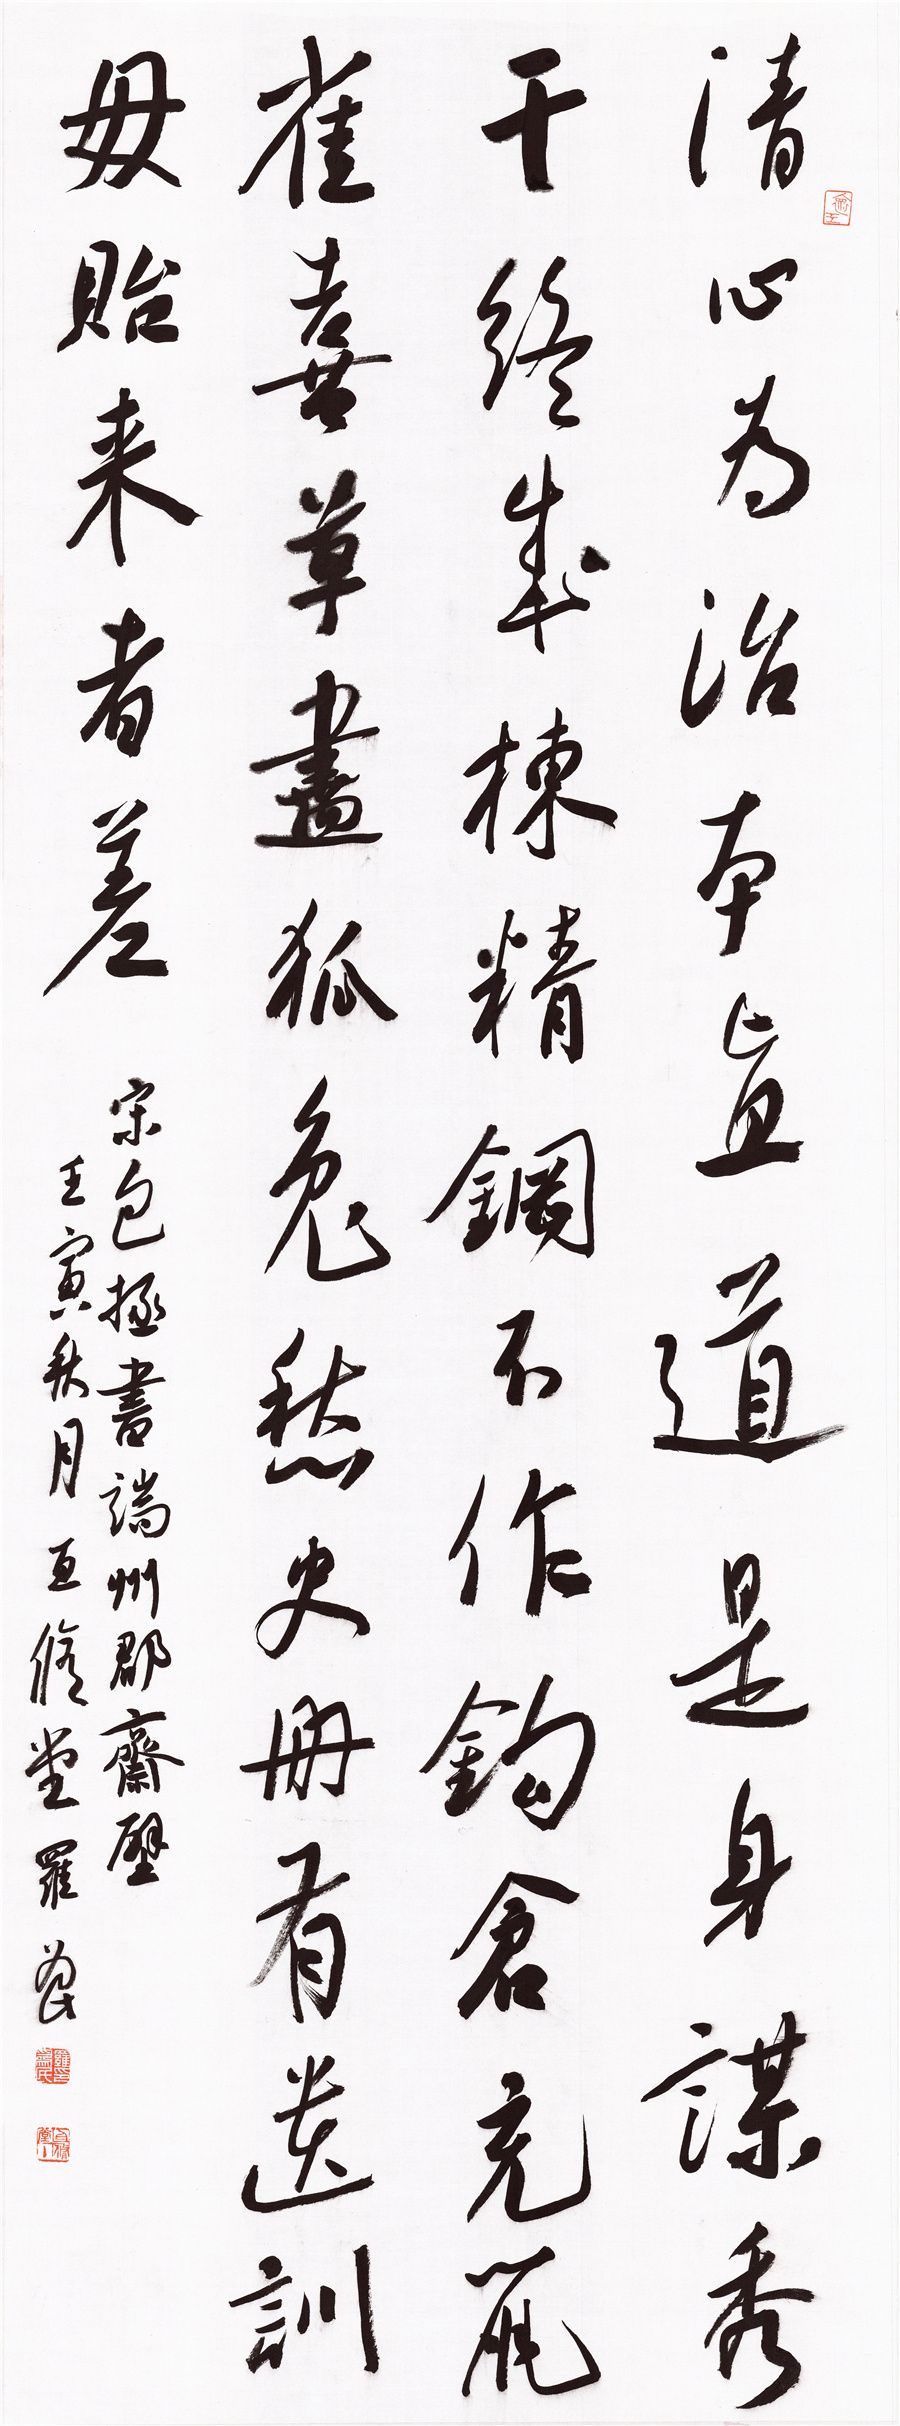 清心为治本直道是身謀秀
干終成棟精鋼不作鈎倉充鼠
雀喜草盡狐兔愁史冊有遗訓
毋貽来者差
宋包拯書端州郡齋壁
壬寅秋月 脩堂羅